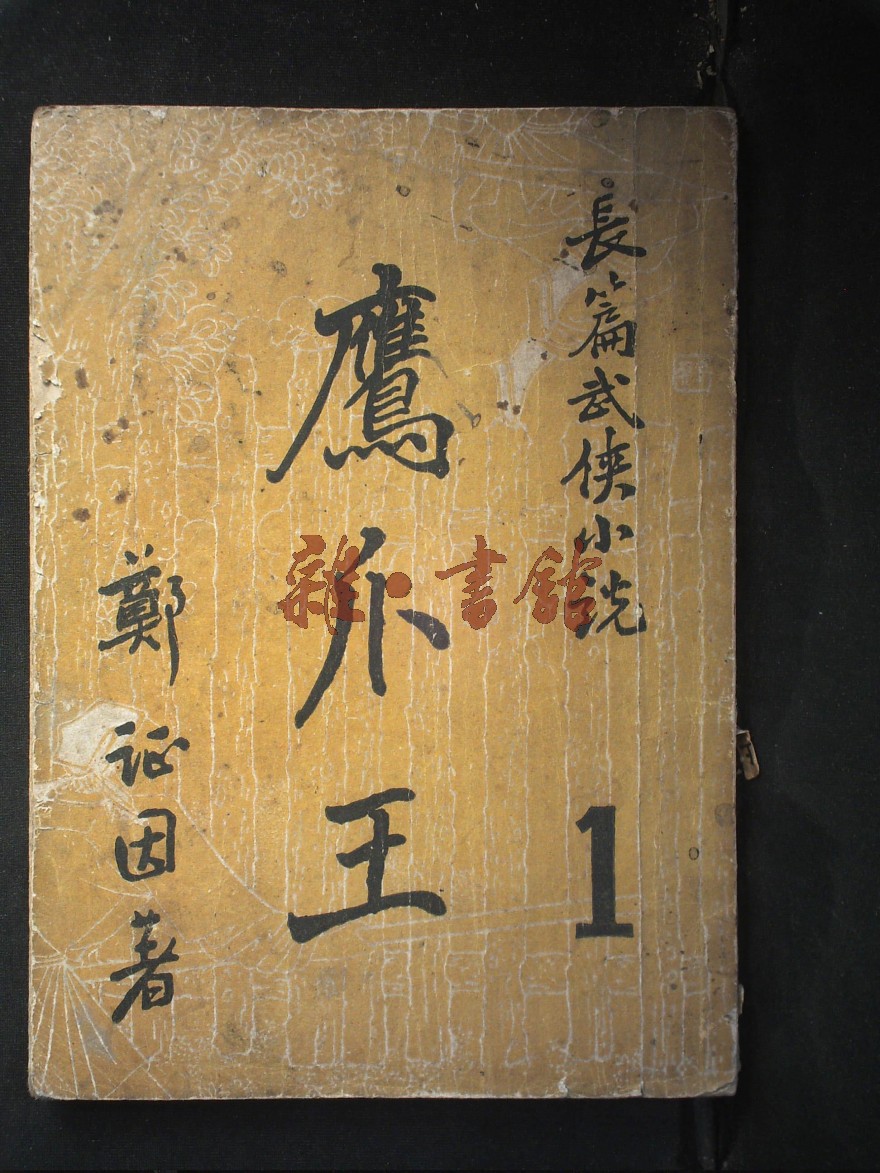 長篇武俠小説
1
鷹爪王
鄭証因著
雜·書館